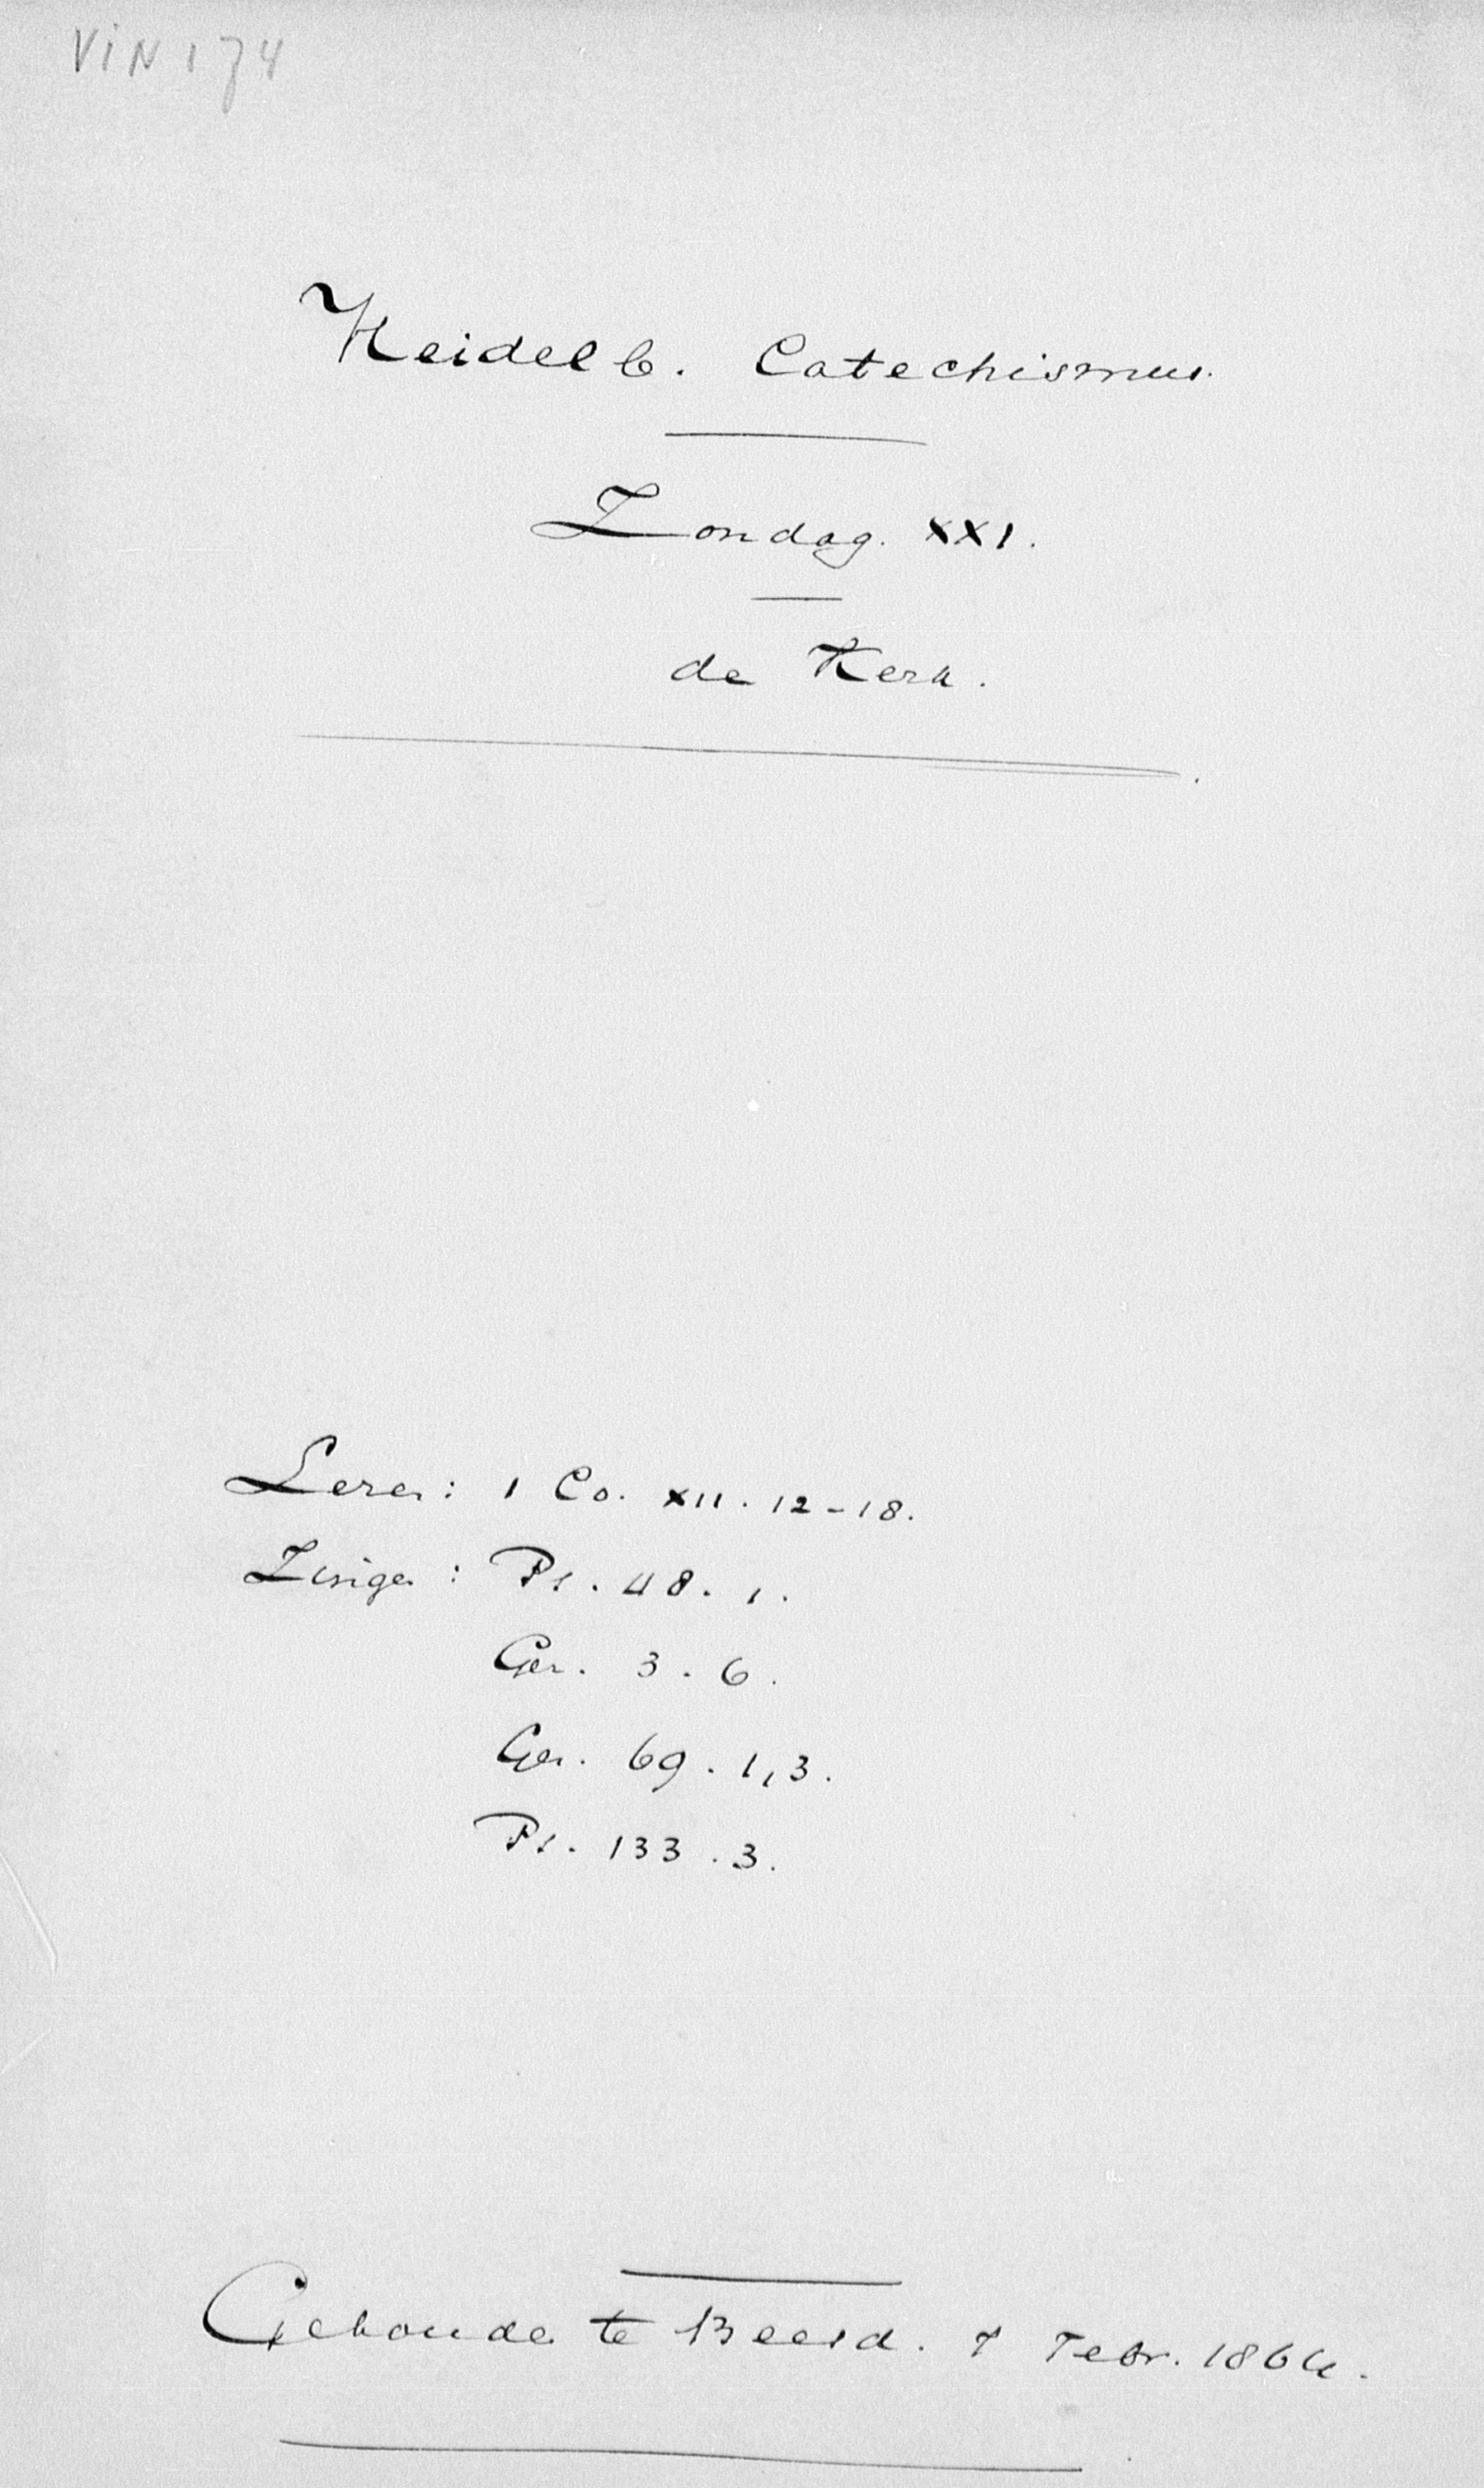 VIN 174
Heidelb. Catechismus.
Zondag. XXI.
de Kerk.
Lezen: 1 Co. XII. 12-18.
Zingen: Ps. 48. 1.
Gez. 3. 6.
Gez. 69. 1,3.
Ps. 133. 3.
Gehouden te Beesd. 7 Febr. 1864.